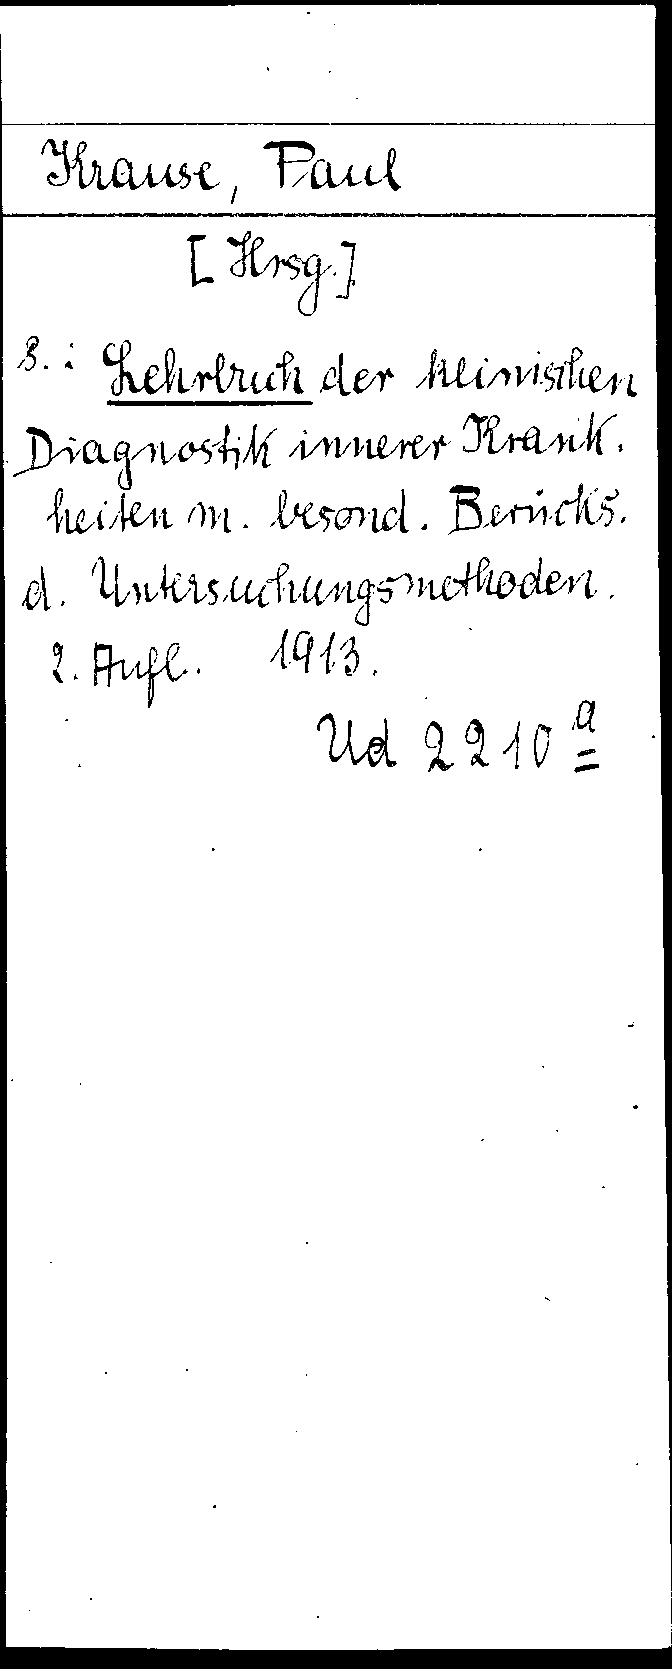 Krause, Paul
[Hrsg.]
s.: Lehrbuch der klinischen
Diagnostik innerer Krank-
heiten m. besond. Berücks.
d. Untersuchungsmethoden.
2. Aufl. 1913.
Ud 2210 a